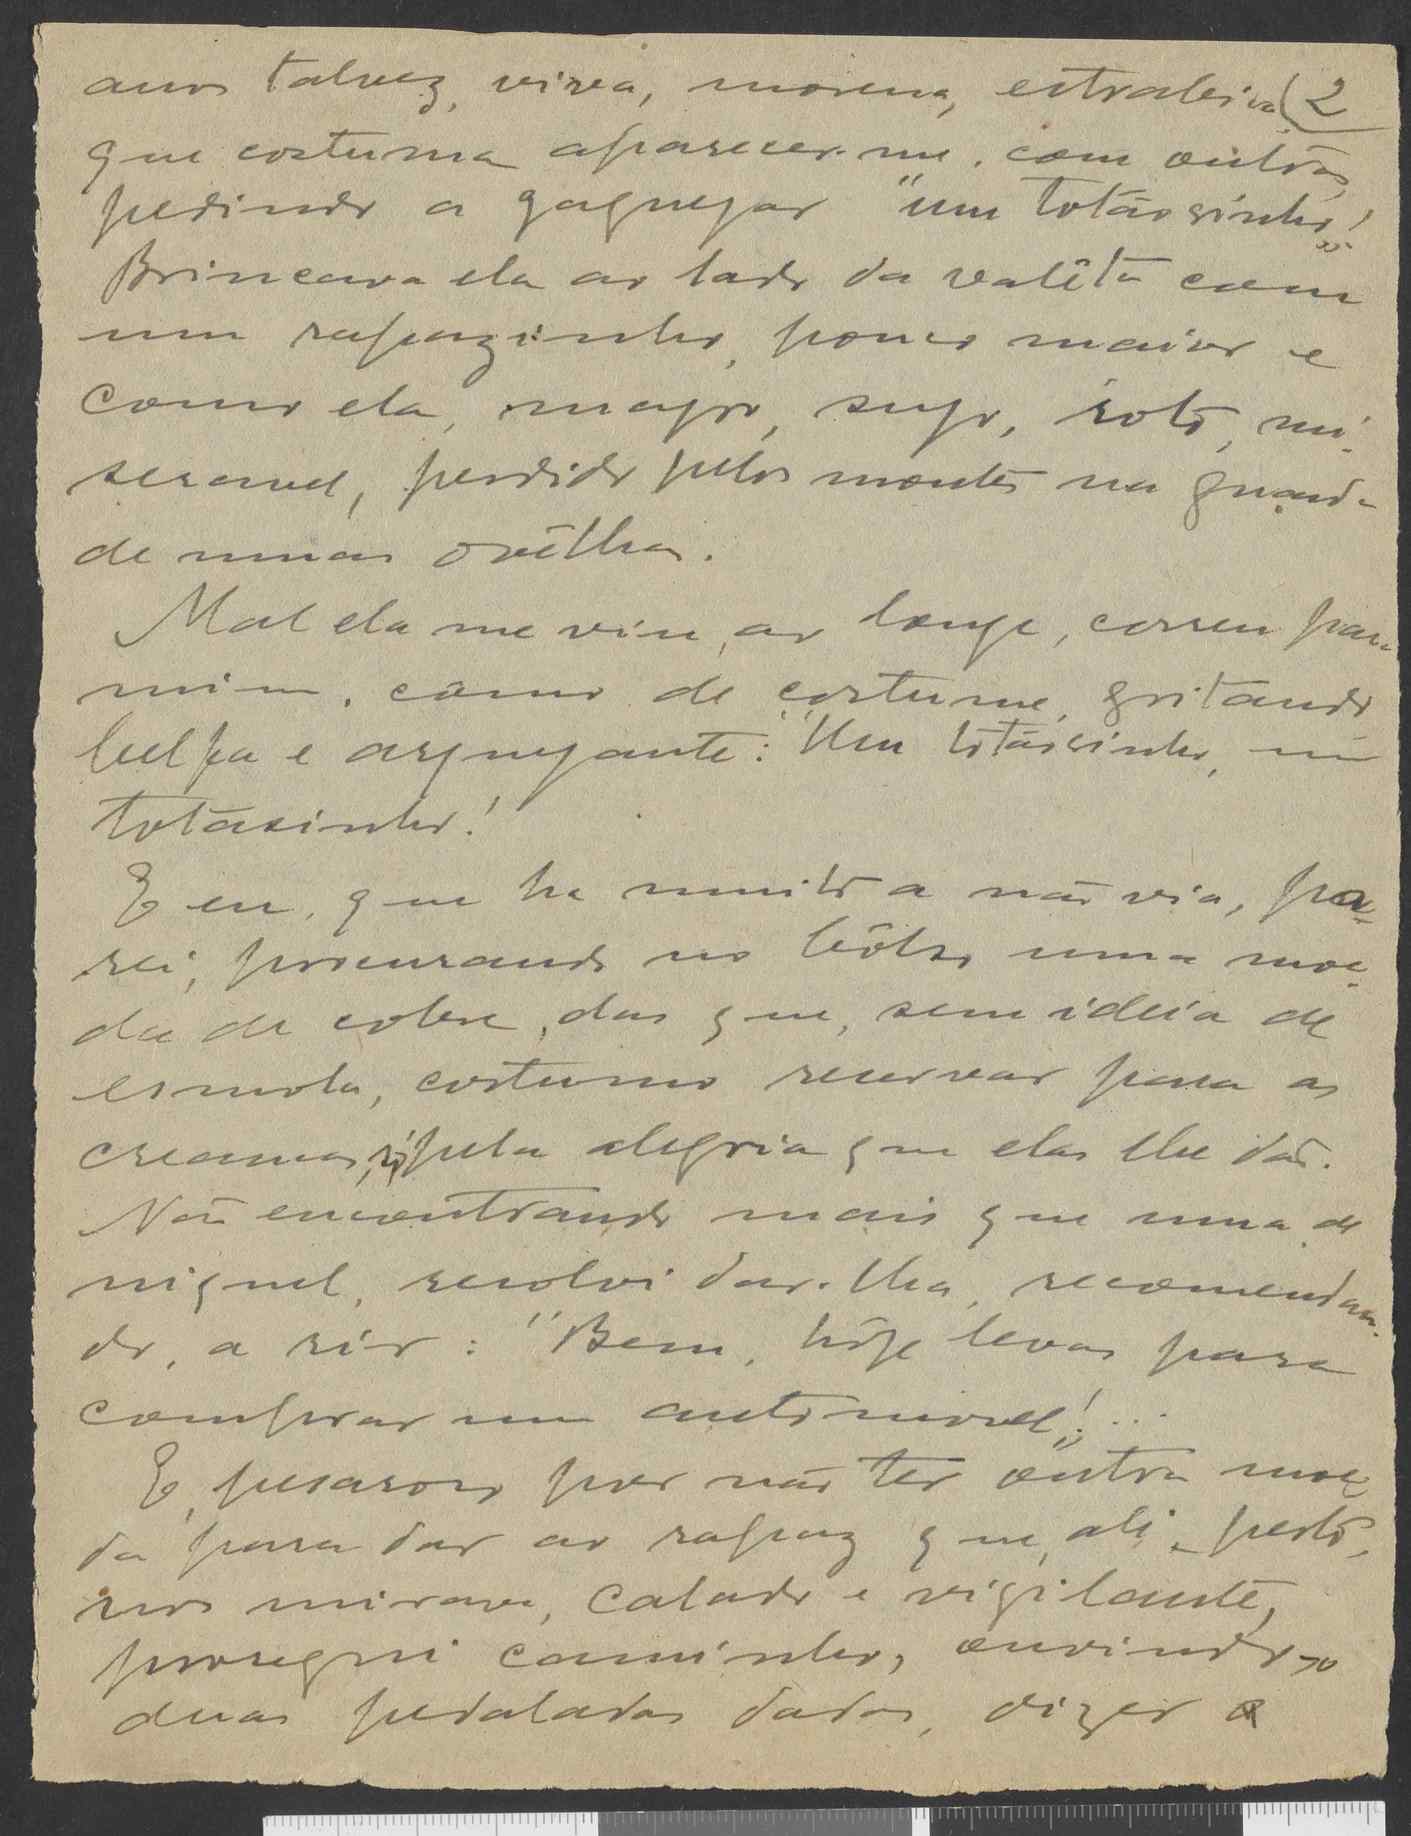 anos talvez, viva, morena, estrabica, (2
que costuma aparecer-me, com outras,
pedindo a gaguejar "um totãosinho!"
Brincava ela ao lado da valêta com
um rapazinho, pouco maior e
como ela, magro, sujo, rôto, mi-
seravel, perdido pelos montes na guarda
de umas ovêlhas.
Mal ela me viu, ao longe, correu para
mim, como de costume, gritando
belfa e arquejante: "Um totãosinho, um
totãosinho!
E eu, que ha muito a não via, pa-
rei, procurando no bôlso uma moe-
da de cobre, das que, sem ideia de
esmola, costumo reservar para as
creanças, só pela alegria que elas lhe dão.
Não encontrando mais que uma de
niquel, resolvi dar-lha, recomendan-
do, a rir: "Bem, hôje levas para
comprar um automovel!"...
E, pesaroso por não ter outra moe-
da para dar ao rapaz que, ali perto,
nos mirava, calado e vigilante,
prosegui caminho, ouvindo-o
duas pedaladas dadas, dizer a